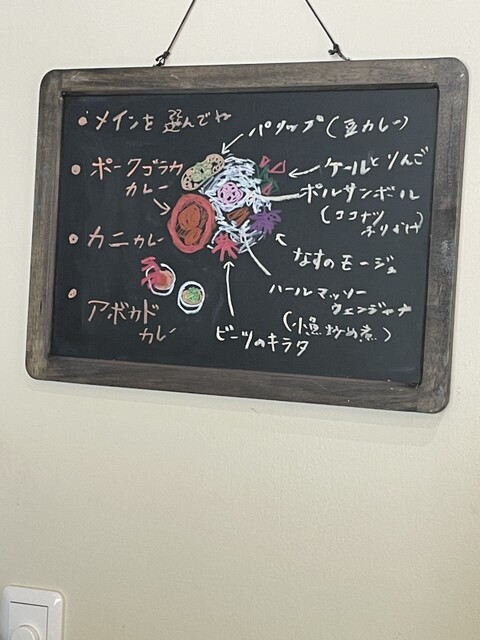 ・メインを選んでね
・ポークゴラカ
カレー
・カニカレー
・アボカド
カレー
パリップ(豆カレー)
ケールとりんご
ポルサンボール
(ココナツ
ふりかけ)
なすのモージュ
ハールマッソー
ウェンジャナ
(小魚炒め煮)
ビーツのキラタ